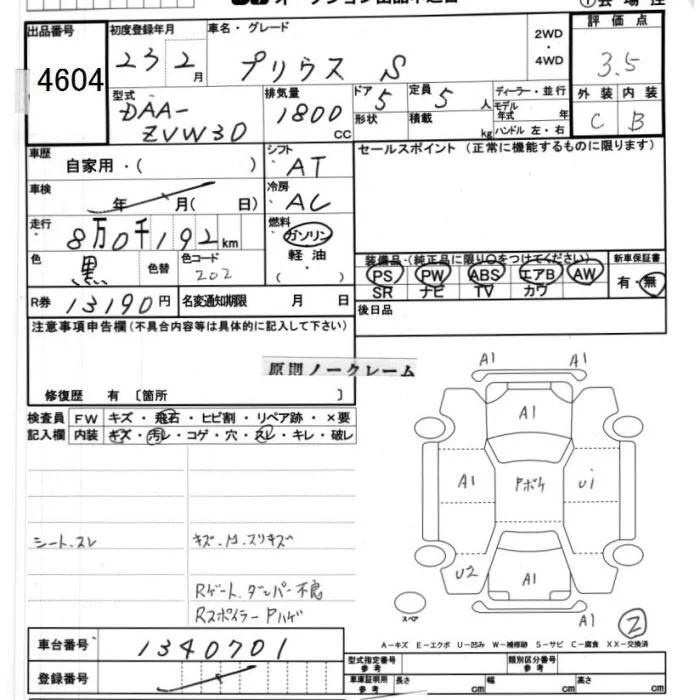 出品番号
4604
初度登録年月
23 2月
車名・グレード
プリウス S
2WD
・
4WD
評価点
3.5
外装 内装
C B
型式
DAA-
ZVW30
排気量
1800
CC
ドア
5
形状
定員
5人
積載
kg
ディーラー・並行
モデル
年式 年
ハンドル 左・右
車歴
自家用・( )
シフト
AT
セールスポイント (正常に機能するものに限ります)
車検
年 月( 日)
冷房
AC
走行
8万0千192km
燃料
ガソリン
軽油
( )
色
黒
色替
色コード
202
装備品・(純正品に限り○をつけてください)
PS PW ABS エアB AW
SR ナビ TV カワ
新車保証書
有・無
R券
13190円
名変通知期限 月 日
後日品
注意事項申告欄(不具合内容等は具体的に記入して下さい)
原則ノークレーム
修復歴 有 〔箇所 〕
検査員
記入欄
FW キズ・飛石・ヒビ割・リペア跡・×要
内装 キズ・汚レ・コゲ・穴・スレ・キレ・破レ
シート.スレ
キズ.M.スリキズ
Rゲート.ダンパー不良
Rスポイラー Pハゲ
A1 A1
A1
A1 Pボケ U1
U2 A1
A1
スペア
2
A-キズ E-エクボ U-凹み W-補修跡 S-サビ C-腐食 XX-交換済
車台番号
1340701
登録番号
型式指定番号
参考
類別区分番号
参考
車庫証明用
参考
長さ cm 幅 cm 高さ cm